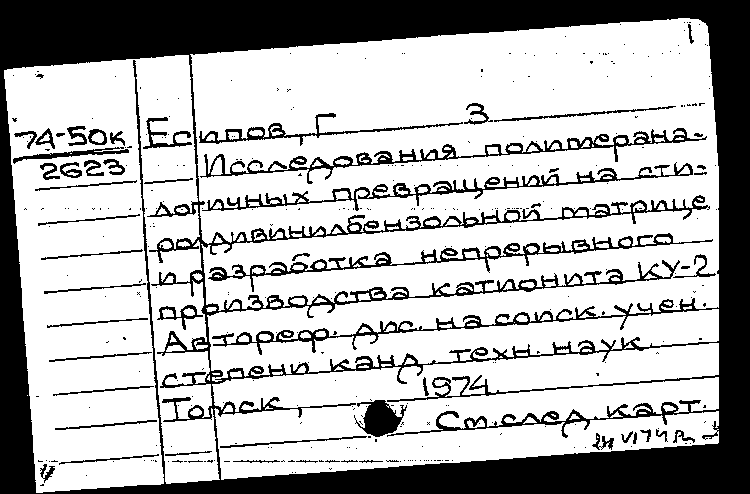 1
74-50к Есипов, Г З
2623 Исследования полимерана-
логичных превращений на сти-
ролдивинилбензольной матрице
и разработка непрерывного
производства катионита КУ-2.
Автореф. дис. на соиск. учен.
степени канд. техн. наук.
Томск, 1974.
См. след. карт.